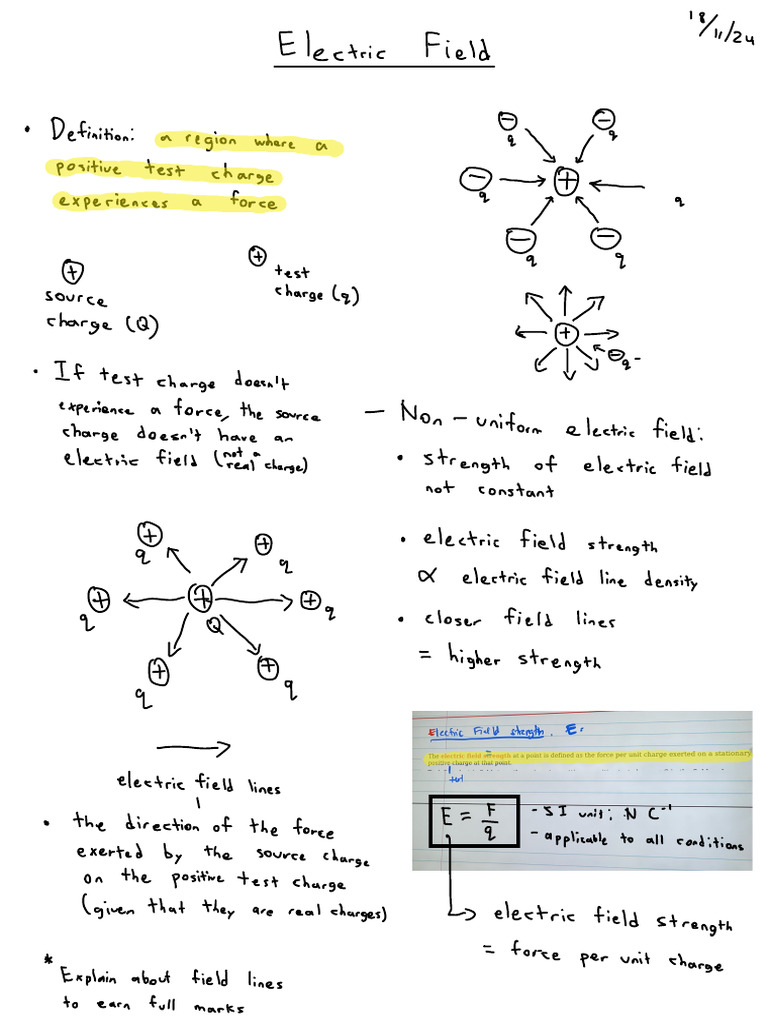 18/11/24
Electric Field
• Definition: a region where a
positive test charge
experiences a force
+
source
charge (Q)
+
test
charge (q)
• If test charge doesn't
experience a force, the source
charge doesn't have an
electric field (not a real charge)
+ q
+ q
+ q
+ Q
+ q
+ q
+ q
electric field lines
• the direction of the force
exerted by the source charge
on the positive test charge
(given that they are real charges)
* Explain about field lines
to earn full marks
− q
− q
− q
+
q
− q
− q
+
− q -
– Non-uniform electric field:
• strength of electric field
not constant
• electric field strength
∝ electric field line density
• closer field lines
= higher strength
Electric Field strength, E:
The electric field strength at a point is defined as the force per unit charge exerted on a stationary
positive charge at that point.
test
E = F/q
- SI unit: N C⁻¹
- applicable to all conditions
electric field strength
= force per unit charge